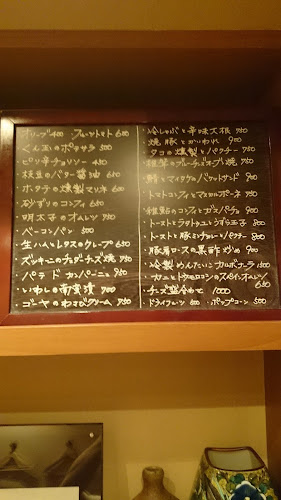 オリーブ 400 ・フルーツトマト 600
くん玉のポテサラ 500
ピリ辛チョリソー 450
枝豆のバター醤油 600
ホタテの燻製マリネ 600
砂ずりのコンフィ 650
明太子のオムレツ 750
ベーコンパン 500
生ハムとレタスのクレープ 650
ズッキーニのチェダーチーズ焼 750
パテ ド カンパーニュ 750
いわしの南蛮漬 700
ゴーヤのわさびクリーム 750
・冷しゃぶと辛味大根 750
・焼豚とかいわれ 900
・タコの燻製とパクチー 750
・椎茸のブルーチーズオーブン焼 750
・鮪とマイタケのバゲットサンド 800
・トマトコンフィとマスカルポーネ 750
・雑鶏のコンフィとガスパチョ 900
・トーストラタトゥユとうずら玉子 800
・トーストと豚ミンチカレーバター 800
・豚肩ロースの黒酢炒め 900
・冷製めんたいこカルボナーラ 1500
・カニとトウモロコシのスペインオムレツ 650
・チーズ盛合わせ 1000
・ドライフルーツ 500 ・ポップコーン 500